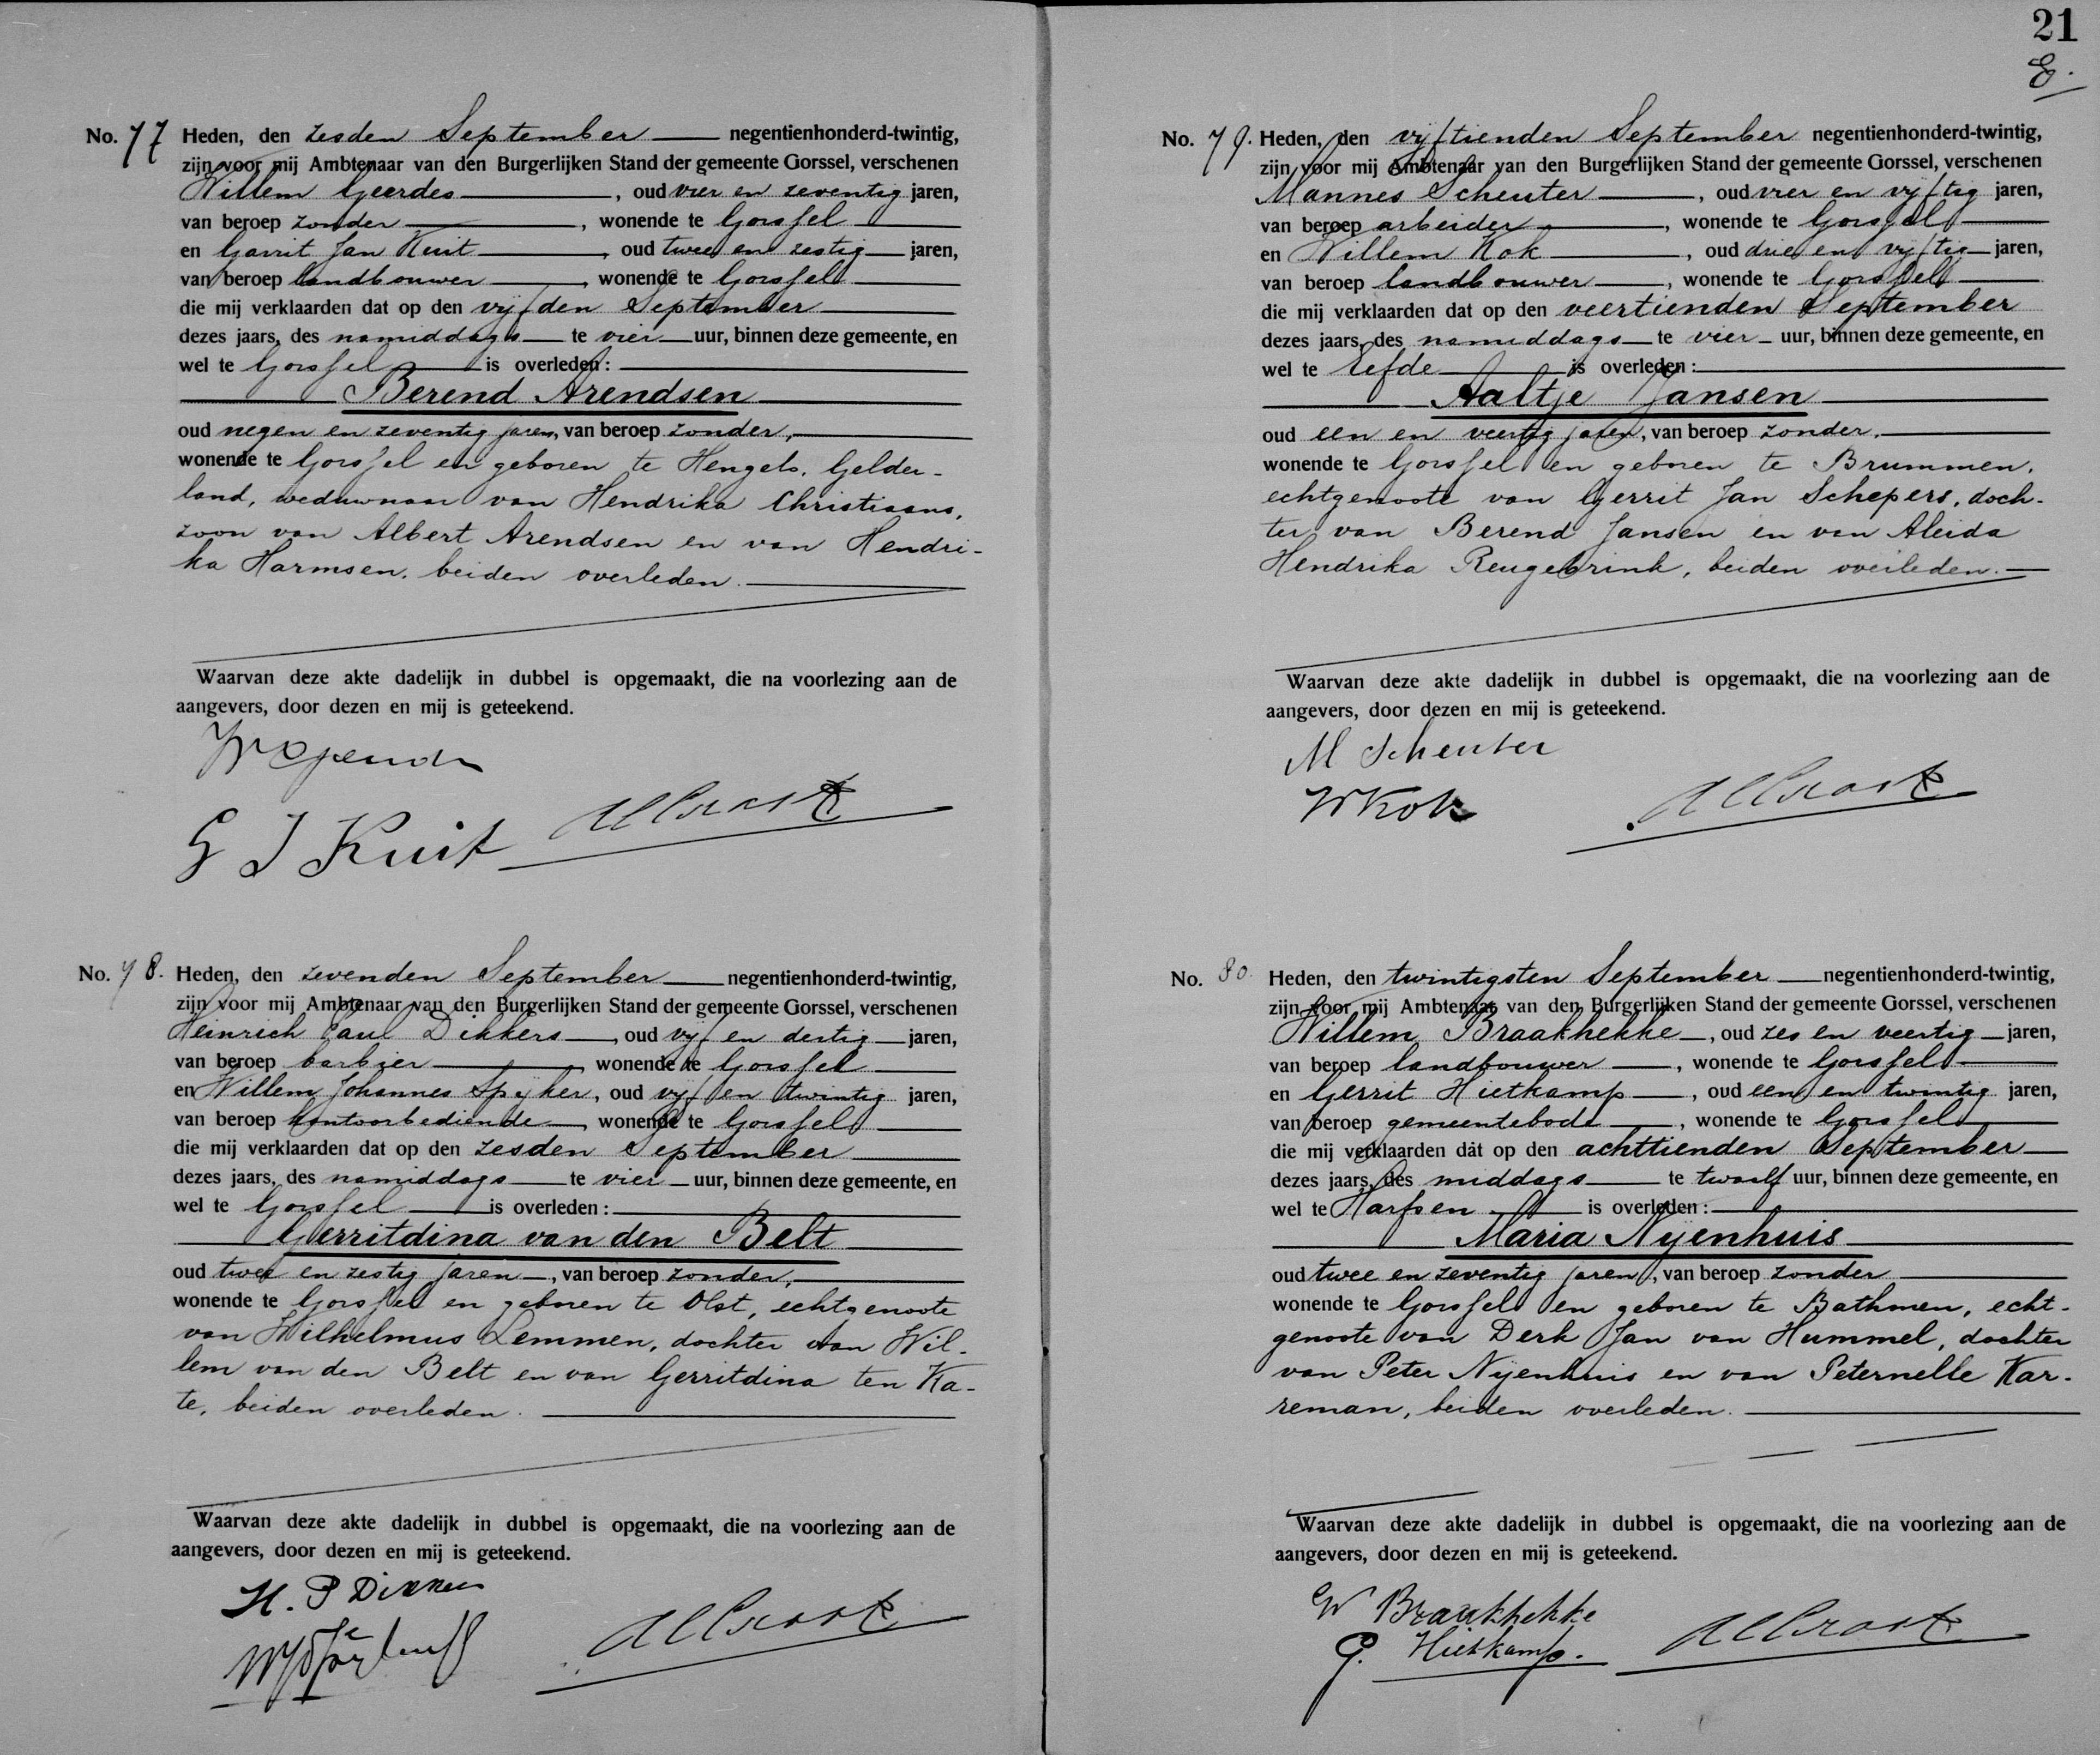 No. 77 Heden, den zesden September negentienhonderd-twintig,
zijn voor mij Ambtenaar van den Burgerlijken Stand der gemeente Gorssel, verschenen
Willem Geerdes, oud vier en zeventig jaren,
van beroep zonder, wonende te Gorssel
en Garrit Jan Kuit, oud twee en zestig jaren,
van beroep landbouwer, wonende te Gorssel
die mij verklaarden dat op den vijfden September
dezes jaars, des namiddags te vier uur, binnen deze gemeente, en
wel te Gorssel is overleden:
Berend Arendsen
oud negen en zeventig jaren, van beroep zonder,
wonende te Gorssel en geboren te Hengelo, Gelder-
land, weduwnaar van Hendrika Christiaans,
zoon van Albert Arendsen en van Hendri-
ka Harmsen, beiden overleden.
Waarvan deze akte dadelijk in dubbel is opgemaakt, die na voorlezing aan de
aangevers, door dezen en mij is geteekend.
G J Kuit
No. 78. Heden, den zevenden September negentienhonderd-twintig,
zijn voor mij Ambtenaar van den Burgerlijken Stand der gemeente Gorssel, verschenen
Heinrich Paul Dikkers, oud vijf en dertig jaren,
van beroep barbier, wonende te Gorssel
en Willem Johannes Spijker, oud vijf en twintig jaren,
van beroep kantoorbediende, wonende te Gorssel
die mij verklaarden dat op den zesden September
dezes jaars, des namiddags te vier uur, binnen deze gemeente, en
wel te Gorssel is overleden:
Gerritdina van den Belt
oud twee en zestig jaren, van beroep zonder,
wonende te Gorssel en geboren te Olst, echtgenoote
van Wilhelmus Lemmen, dochter van Wil-
lem van den Belt en van Gerritdina ten Ka-
te, beiden overleden.
Waarvan deze akte dadelijk in dubbel is opgemaakt, die na voorlezing aan de
aangevers, door dezen en mij is geteekend.
H. P Dikkers
21
No. 79. Heden, den vijftienden September negentienhonderd-twintig,
zijn voor mij Ambtenaar van den Burgerlijken Stand der gemeente Gorssel, verschenen
Mannes Scheuter, oud vier en vijftig jaren,
van beroep arbeider, wonende te Gorssel
en Willem Kok, oud drie en vijftig jaren,
van beroep landbouwer, wonende te Gorssel
die mij verklaarden dat op den veertienden September
dezes jaars, des namiddags te vier uur, binnen deze gemeente, en
wel te Eefde is overleden:
Aaltje Jansen
oud een en veertig jaren, van beroep zonder,
wonende te Gorssel en geboren te Brummen,
echtgenoote van Gerrit Jan Schepers, doch-
ter van Berend Jansen en van Aleida
Hendrika Reugebrink, beiden overleden.
Waarvan deze akte dadelijk in dubbel is opgemaakt, die na voorlezing aan de
aangevers, door dezen en mij is geteekend.
M Scheuter
W Kok
No. 80. Heden, den twintigsten September negentienhonderd-twintig,
zijn voor mij Ambtenaar van den Burgerlijken Stand der gemeente Gorssel, verschenen
Willem Braakhekke, oud zes en veertig jaren,
van beroep landbouwer, wonende te Gorssel
en Gerrit Hietkamp, oud een en twintig jaren,
van beroep gemeentebode, wonende te Gorssel
die mij verklaarden dat op den achttienden September
dezes jaars, des middags te twaalf uur, binnen deze gemeente, en
wel te Harfsen is overleden:
Maria Nijenhuis
oud twee en zeventig jaren, van beroep zonder
wonende te Gorssel en geboren te Bathmen, echt-
genoote van Derk Jan van Hummel, dochter
van Peter Nijenhuis en van Peternelle Kar-
reman, beiden overleden.
Waarvan deze akte dadelijk in dubbel is opgemaakt, die na voorlezing aan de
aangevers, door dezen en mij is geteekend.
W Braakhekke
G. Hietkamp.